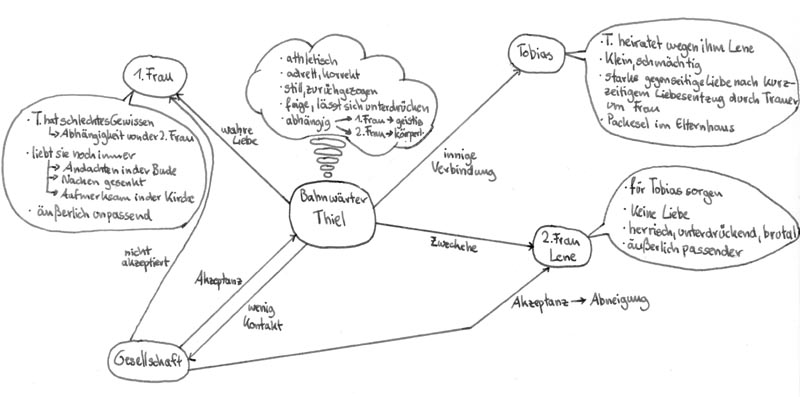 1. Frau
· T. hat schlechtes Gewissen
↳ Abhängigkeit von der 2. Frau
· liebt sie noch immer
→ Andachten in der Bude
→ Nacken gesenkt
→ Aufmerksam in der Kirche
· äußerlich unpassend
· athletisch
· adrett, korrekt
· still, zurückgezogen
· feige, lässt sich unterdrücken
· abhängig → 1. Frau → geistig
→ 2. Frau → körperl.
Tobias
· T. heiratet wegen ihm Lene
· Klein, schmächtig
· starke gegenseitige Liebe nach kurz-
zeitigem Liebesentzug durch Trauer
um Frau
· Packesel im Elternhaus
wahre
Liebe
innige
Verbindung
Bahnwärter
Thiel
Zweckehe
2. Frau
Lene
· für Tobias sorgen
· Keine Liebe
· herrisch, unterdrückend, brutal
· äußerlich passender
nicht
akzeptiert
Akzeptanz
wenig
Kontakt
Akzeptanz → Abneigung
Gesellschaft